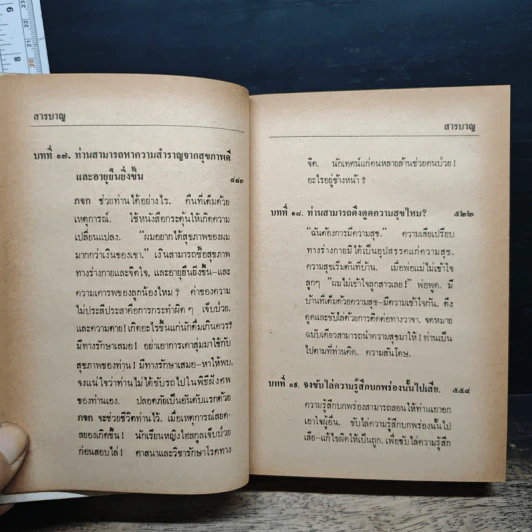 สารบาญ
บทที่ ๑๗. ท่านสามารถหาความสำราญจากสุขภาพดี
และอายุยืนยิ่งขึ้น
ภจก ช่วยท่านได้อย่างไร. คืนที่เต็มด้วย
เหตุการณ์. ใช้หนังสือกระตุ้นให้เกิดความ
เปลี่ยนแปลง. "ผมอยากได้สุขภาพของผม
มากกว่าเงินของเขา." เงินสามารถซื้อสุขภาพ
ทางร่างกายและจิตใจ, และอายุยืนยิ่งขึ้น–และ
ความเคารพของลูกน้องไหม? ค่าของความ
ไม่ประสีประสาคือการกระทำผิด ๆ เจ็บป่วย.
และความตาย! เกิดอะไรขึ้นแก่นักดื่มเกินควร?
มีทางรักษาเสมอ! อย่าเอาการเดาสุ่มมาใช้กับ
สุขภาพของท่าน! มีทางรักษาเสมอ–หาให้พบ.
จงแน่ใจว่าท่านไม่ได้ขับรถไปในพิธีฝังศพ
ของท่านเอง. ปลอดภัยเป็นอันดับแรกด้วย
ภจก จะช่วยชีวิตท่านไว้. เมื่อเหตุการณ์สยด–
สยองเกิดขึ้น! นักเรียนหญิงไฮสกูลเจ็บป่วย
ก่อนสอบไล่! ศาสนาและวิชารักษาโรคทาง
สารบาญ
จิต. นักเทศน์แก่คนหลายล้านช่วยคนป่วย!
อะไรอยู่ข้างหน้า?
บทที่ ๑๘. ท่านสามารถดึงดูดความสุขไหม? ๕๒๒
"ฉันต้องการมีความสุข." ความเสียเปรียบ
ทางร่างกายมิได้เป็นอุปสรรคแก่ความสุข.
ความสุขเริ่มต้นที่บ้าน. เมื่อพ่อแม่ไม่เข้าใจ
ลูกๆ "ผมไม่เข้าใจลูกสาวเลย!" พ่อพูด. มี
บ้านที่เต็มด้วยความสุข–มีความเข้าใจกัน. ดึง
ดูดและขับไล่ด้วยการติดต่อทางวาจา. จดหมาย
ฉบับเดียวสามารถนำความสุขมาให้! ท่านเป็น
ไปตามที่ท่านคิด. ความสันโดษ.
บทที่ ๑๙. จงขับไล่ความรู้สึกบกพร่องนั้นไปเสีย. ๕๕๔
ความรู้สึกบกพร่องสามารถสอนให้ท่านเอาอก
เอาใจผู้อื่น. ขับไล่ความรู้สึกบกพร่องนั้นไป
เสีย–แก้ไขผิดให้เป็นถูก. เพื่อขับไล่ความรู้สึก